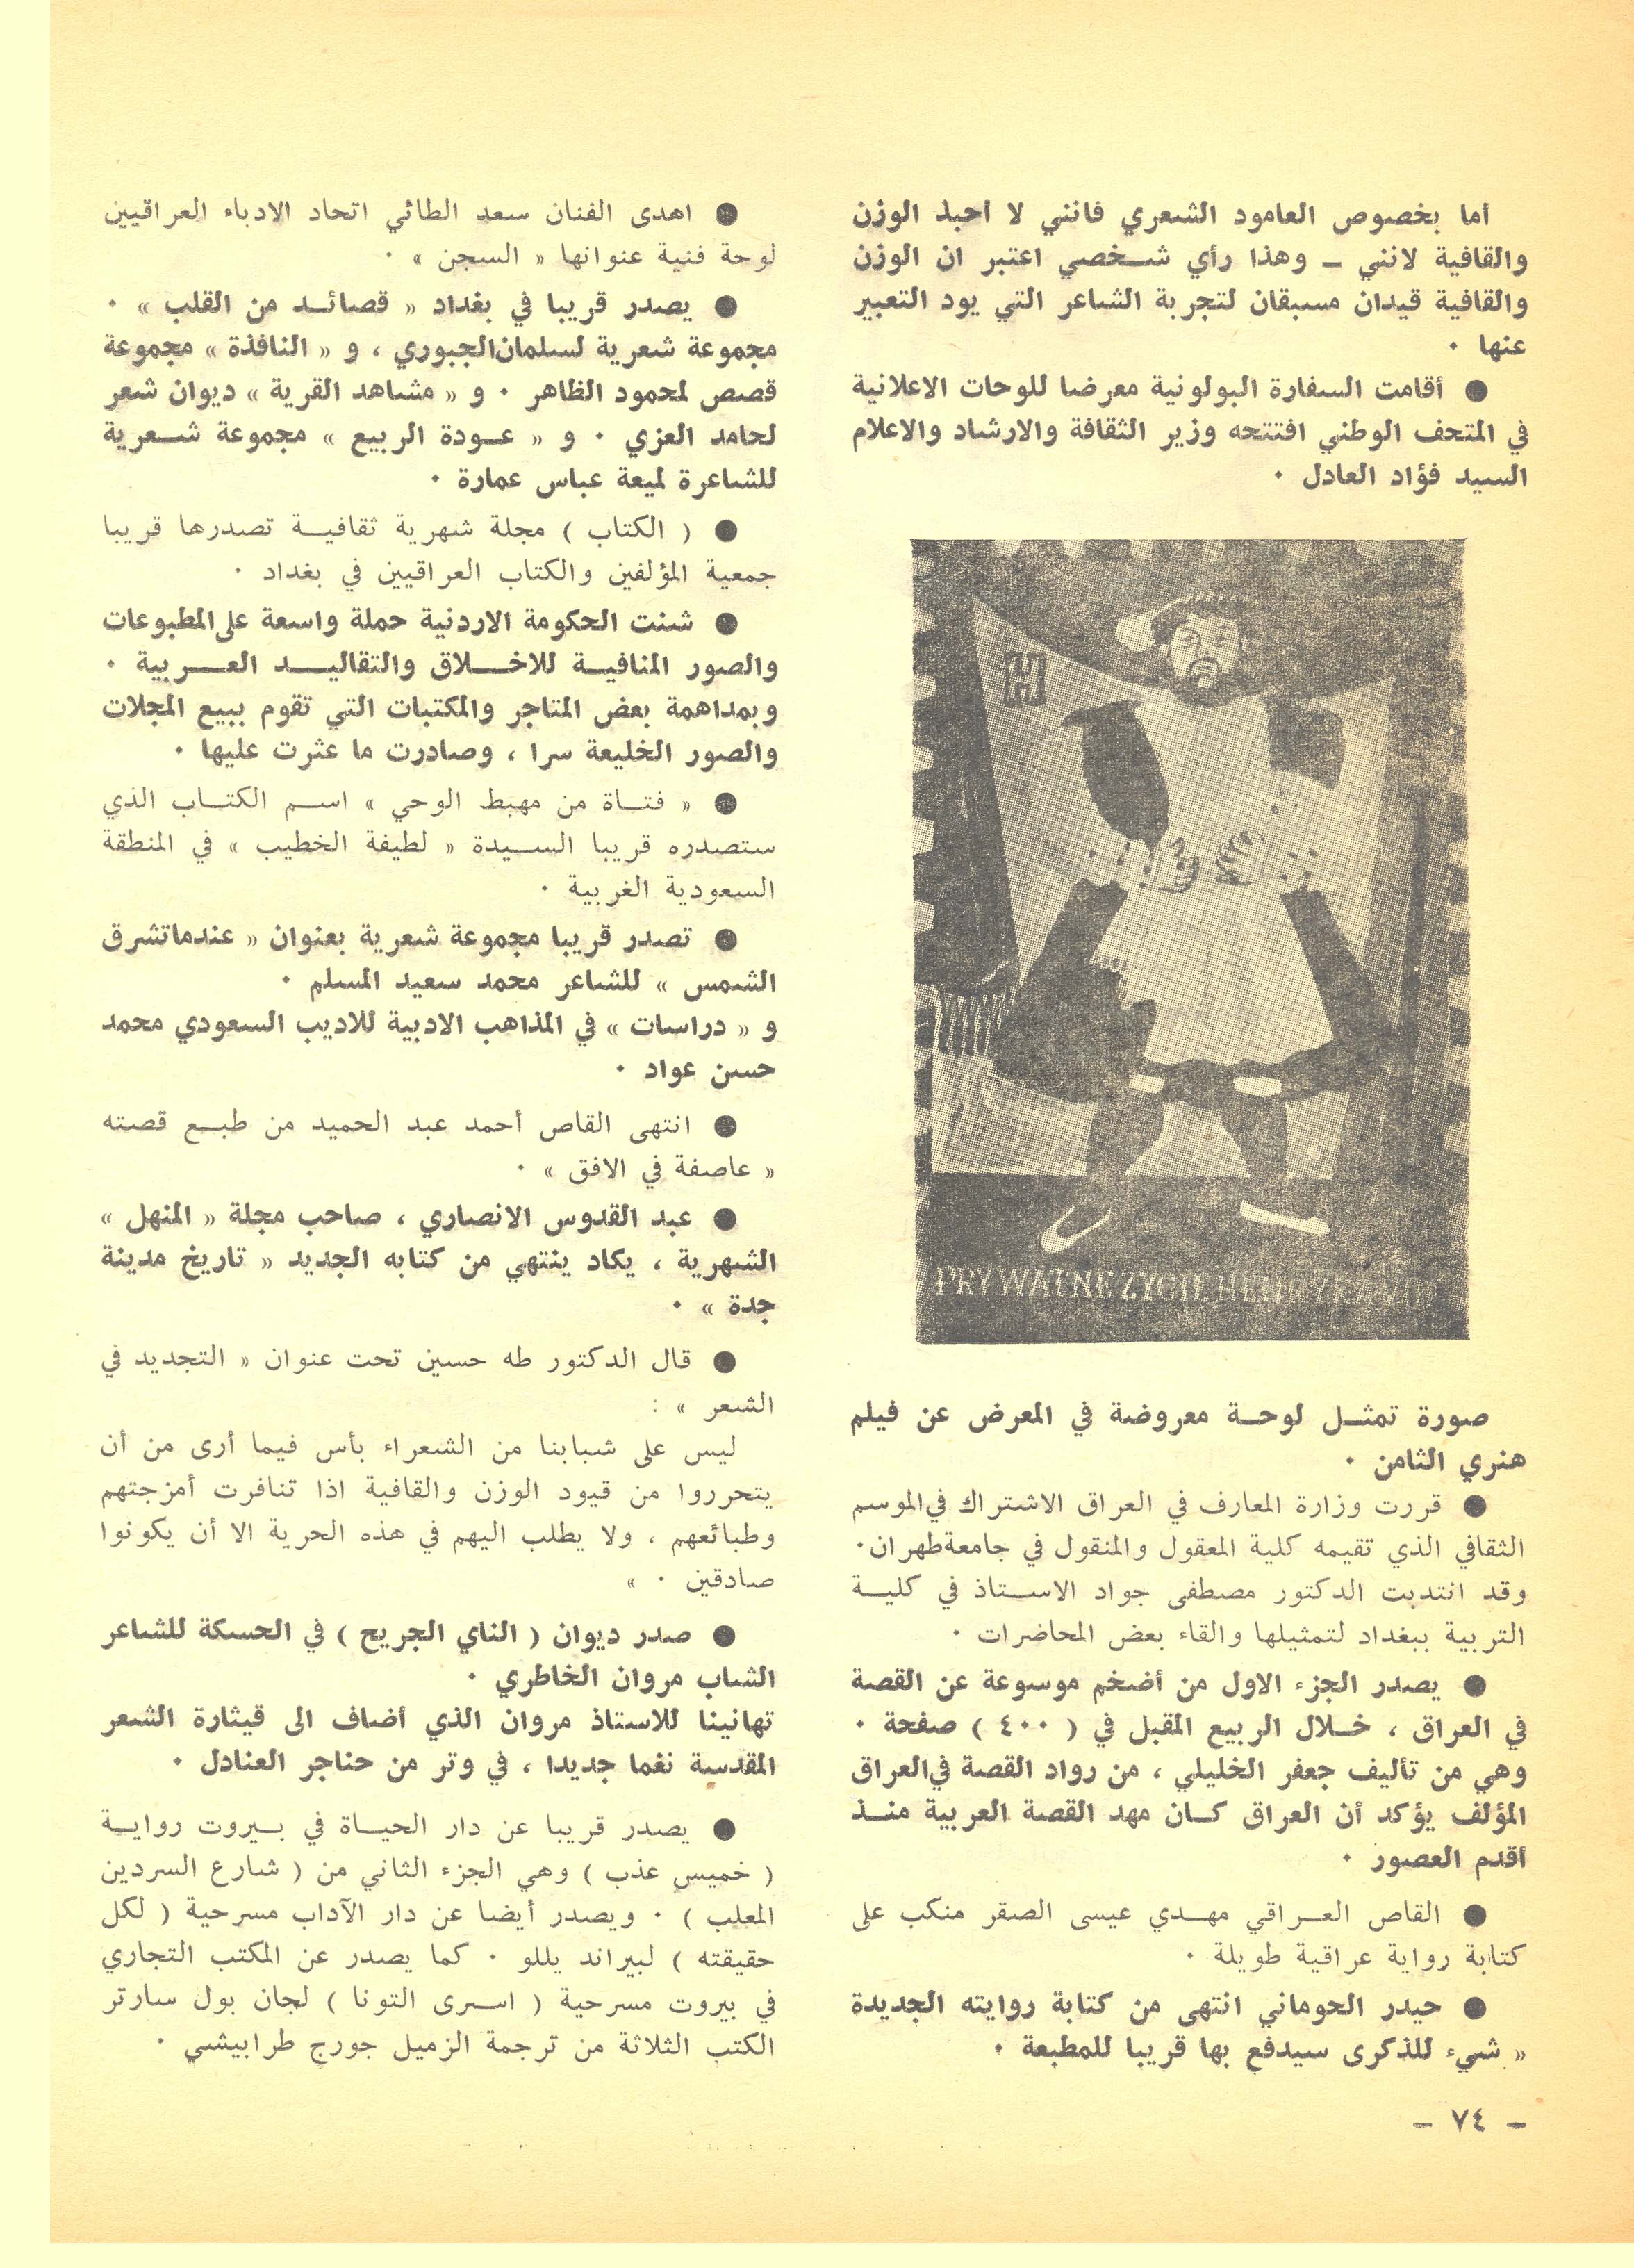 أما بخصوص العامود الشعري فانني لا احبذ الوزن
والقافية لانني ــ وهذا رأي شخصي اعتبر ان الوزن
والقافية قيدان مسبقان لتجربة الشاعر التي يود التعبير
عنها ٠
● أقامت السفارة البولونية معرضا للوحات الاعلانية
في المتحف الوطني افتتحه وزير الثقافة والارشاد والاعلام
السيد فؤاد العادل ٠
H
PRYWATNE ZYCIE HENRYKA VIII
صورة تمثل لوحة معروضة في المعرض عن فيلم
هنري الثامن ٠
● قررت وزارة المعارف في العراق الاشتراك في الموسم
الثقافي الذي تقيمه كلية المعقول والمنقول في جامعة طهران ٠
وقد انتدبت الدكتور مصطفى جواد الاستاذ في كلية
التربية ببغداد لتمثيلها والقاء بعض المحاضرات ٠
● يصدر الجزء الاول من أضخم موسوعة عن القصة
في العراق ، خلال الربيع المقبل في ( ٤٠٠ ) صفحة ٠
وهي من تأليف جعفر الخليلي ، من رواد القصة في العراق
المؤلف يؤكد أن العراق كان مهد القصة العربية منذ
أقدم العصور ٠
● القاص العراقي مهدي عيسى الصقر منكب على
كتابة رواية عراقية طويلة ٠
● حيدر الحوماني انتهى من كتابة روايته الجديدة
« شيء للذكرى سيدفع بها قريبا للمطبعة ٠
● اهدى الفنان سعد الطائي اتحاد الادباء العراقيين
لوحة فنية عنوانها « السجن » ٠
● يصدر قريبا في بغداد « قصائد من القلب » ٠
مجموعة شعرية لسلمان الجبوري ، و « النافذة » مجموعة
قصص لمحمود الظاهر ٠ و « مشاهد القرية » ديوان شعر
لحامد العزي ٠ و « عودة الربيع » مجموعة شعرية
للشاعرة لميعة عباس عمارة ٠
● ( الكتاب ) مجلة شهرية ثقافية تصدرها قريبا
جمعية المؤلفين والكتاب العراقيين في بغداد ٠
● شنت الحكومة الاردنية حملة واسعة على المطبوعات
والصور المنافية للاخلاق والتقاليد العربية ٠
وبمداهمة بعض المتاجر والمكتبات التي تقوم ببيع المجلات
والصور الخليعة سرا ، وصادرت ما عثرت عليها ٠
● « فتاة من مهبط الوحي » اسم الكتاب الذي
ستصدره قريبا السيدة « لطيفة الخطيب » في المنطقة
السعودية الغربية ٠
● تصدر قريبا مجموعة شعرية بعنوان « عندما تشرق
الشمس » للشاعر محمد سعيد المسلم ٠
و « دراسات » في المذاهب الادبية للاديب السعودي محمد
حسن عواد ٠
● انتهى القاص أحمد عبد الحميد من طبع قصته
« عاصفة في الافق » ٠
● عبد القدوس الانصاري ، صاحب مجلة « المنهل »
الشهرية ، يكاد ينتهي من كتابه الجديد « تاريخ مدينة
جدة » ٠
● قال الدكتور طه حسين تحت عنوان « التجديد في
الشعر » :
ليس على شبابنا من الشعراء بأس فيما أرى من أن
يتحرروا من قيود الوزن والقافية اذا تنافرت أمزجتهم
وطبائعهم ، ولا يطلب اليهم في هذه الحرية الا أن يكونوا
صادقين ٠ »
● صدر ديوان ( الناي الجريح ) في الحسكة للشاعر
الشاب مروان الخاطري ٠
تهانينا للاستاذ مروان الذي أضاف الى قيثارة الشعر
المقدسة نغما جديدا ، في وتر من حناجر العنادل ٠
● يصدر قريبا عن دار الحياة في بيروت رواية
( خميس عذب ) وهي الجزء الثاني من ( شارع السردين
المعلب ) ٠ ويصدر أيضا عن دار الآداب مسرحية ( لكل
حقيقته ) لبيراند يللو ٠ كما يصدر عن المكتب التجاري
في بيروت مسرحية ( اسرى التونا ) لجان بول سارتر
الكتب الثلاثة من ترجمة الزميل جورج طرابيشي ٠
ــ ٧٤ ــ